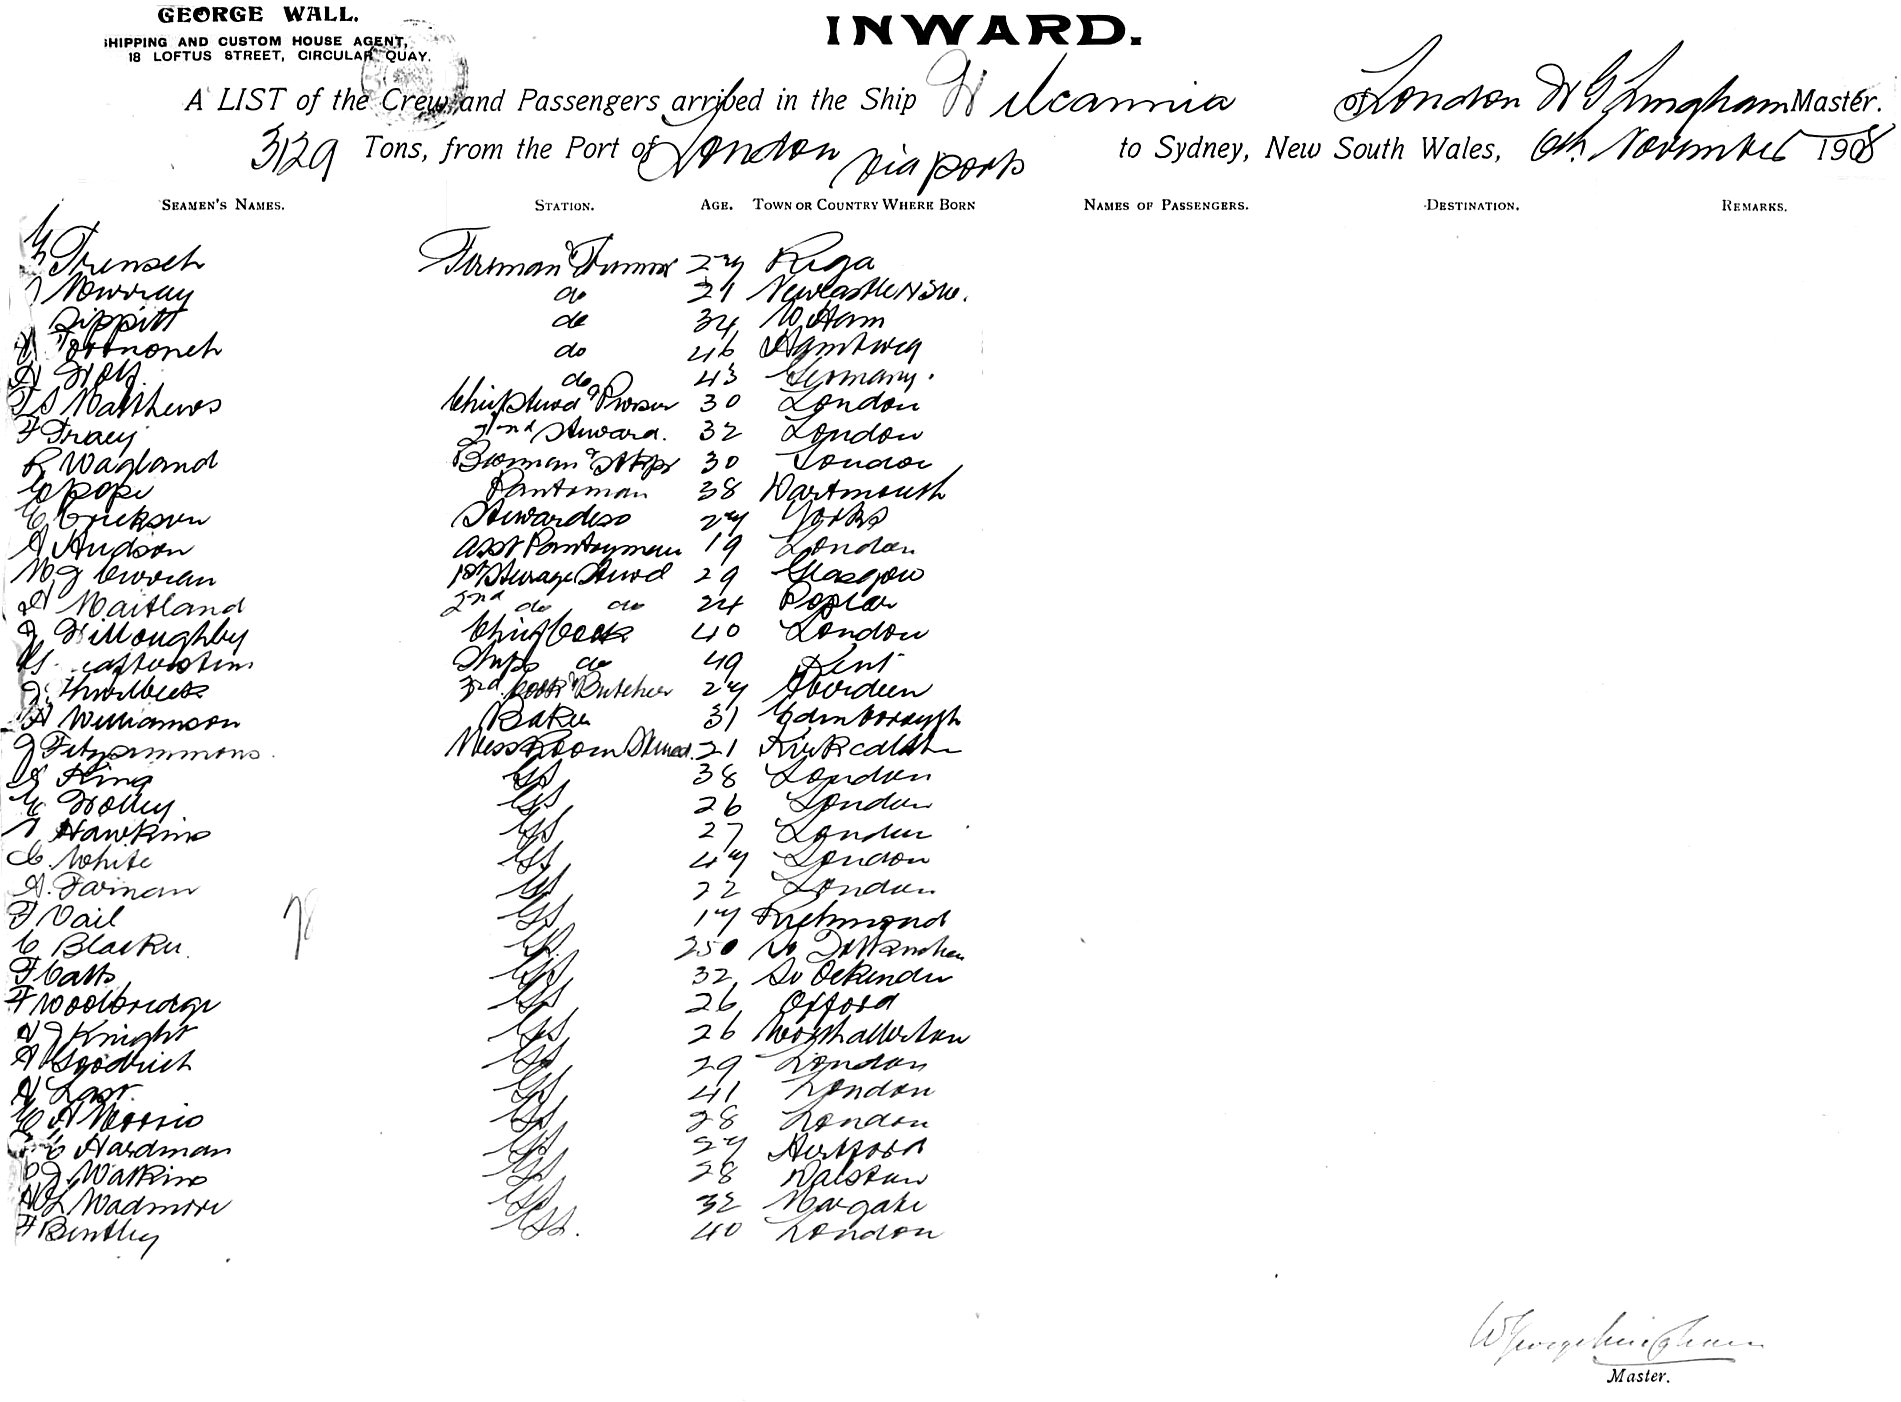 GEORGE WALL.
SHIPPING AND CUSTOM HOUSE AGENT,
18 LOFTUS STREET, CIRCULAR QUAY.
INWARD.
A LIST of the Crew and Passengers arrived in the Ship Wilcannia of London W G Lingham Master.
3129 Tons, from the Port of London via ports to Sydney, New South Wales, 6th November 1908
SEAMEN'S NAMES. STATION. AGE. TOWN OR COUNTRY WHERE BORN NAMES OF PASSENGERS. DESTINATION. REMARKS.
Trensch Fireman & Trimmer 27 Riga
Mowray do 21 Newcastle NSW.
Sippitt do 34 W Ham
do 46 Hamburg
do 43 Germany.
T S Matthews Chief Steward & Purser 30 London
F Tracy 2nd Steward. 32 London
R Wagland 30 London
E Pope Pantryman 38 Dartmouth
C Erickson Stewardess 27 Yorks
A Hudson Asst Pantryman 19 London
W J Curran 1st Steerage Stewd 29 Glasgow
A Maitland 2nd do do 24 Poplar
J Willoughby Chief Cook 40 London
Ships do 49 Kent
J. 3rd Cook & Butcher 27 Aberdeen
A Williamson Baker 31 Edinborough
J Fitzsimmons. Mess Room Steward. 21 Kirkcaldy
G King GS 38 London
E Holley GS 26 London
T Hawkins GS 27 London
C. White GS 47 London
A. Farman GS 22 London
F Vail GS 17 Richmond
C Blacker. GS 250 So
F Catts GS 32 So Ockenden
F Woodbridge GS 26 Oxford
A J Knight GS 26 Northallerton
A Goodrich GS 29 London
A Last. GS 41 London
E A Morris GS 28 London
E Hardman GS 27 Hertford
C J Watkins GS 28 Dalston
W L Wadmore GS 32 Margate
F Bentley GS. 40 London
W George Lingham
Master.